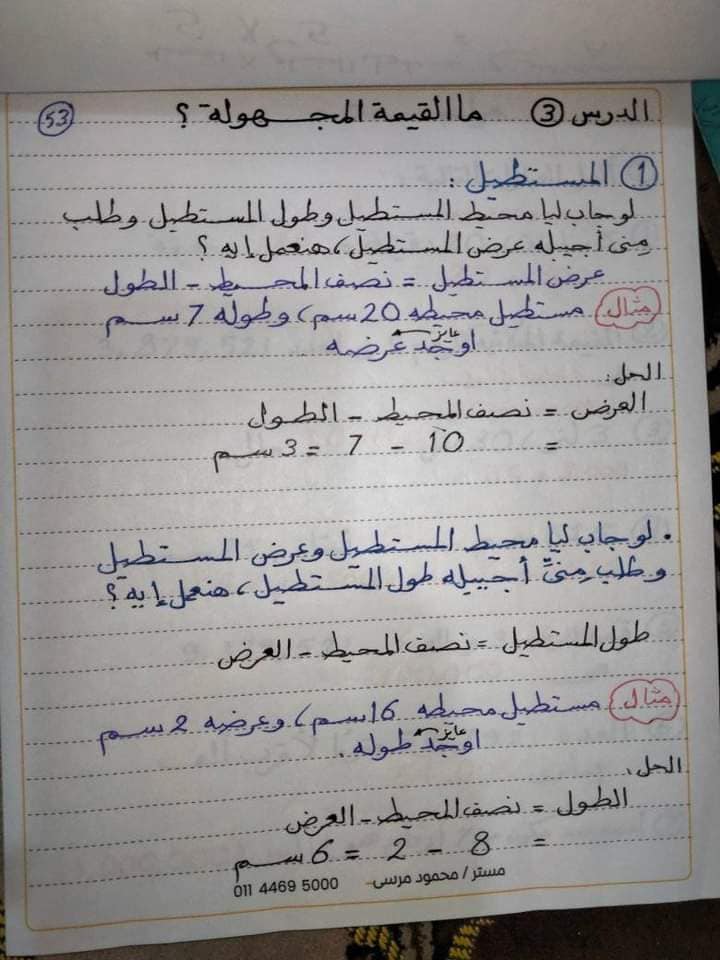 الدرس 3 ما القيمة المجهولة ؟ 53
1 المستطيل :
لو جاب ليا محيط المستطيل وطول المستطيل وطلب
مِنى أجيبله عرض المستطيل، هنعمل إيه ؟
عرض المستطيل = نصف المحيط - الطول
مثال مستطيل محيطه 20 سم، وطوله 7 سم
عايز
اوجد عرضه
الحل:
العرض = نصف المحيط - الطول
= 10 - 7 = 3 سم
. لو جاب ليا محيط المستطيل وعرض المستطيل
وطلب مِنىِّ أجيبله طول المستطيل، هنعمل إيه ؟
طول المستطيل = نصف المحيط - العرض
مثال مستطيل محيطه 16 سم، وعرضه 2 سم
عايز
اوجد طوله .
الحل:
الطول = نصف المحيط - العرض
= 8 - 2 = 6 سم
مستر / محمود مرسى
011 4469 5000